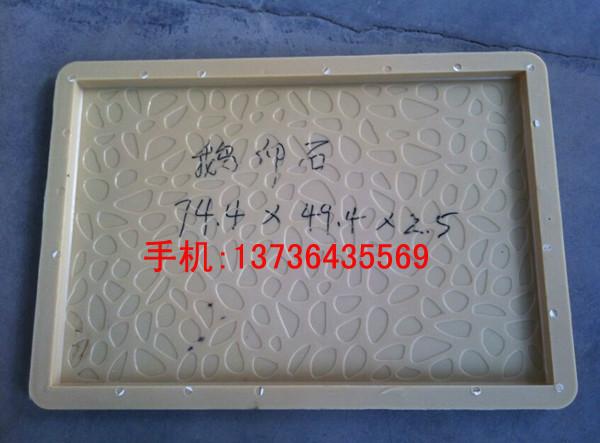 鹅卵石
74.4 x 49.4 x 2.5
手机:13736435569